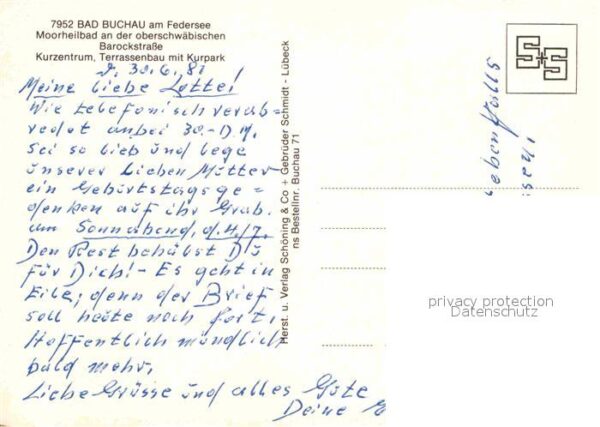 7952 BAD BUCHAU am Federsee
Moorheilbad an der oberschwäbischen
Barockstraße
Kurzentrum, Terrassenbau mit Kurpark
30.6.81
Meine liebe Lotte!
Wie telefonisch verab-
redet anbei 30.- D.M.
Sei so lieb und lege
unserer lieben Mutter
ein Geburtstagsge=
denken auf ihr Grab.
am Sonnabend, d. 4./7.
Den Rest behälst Du
für Dich! - Es geht in
Eile; denn der Brief
soll heute noch fort.
Hoffentlich mündlich
bald mehr.
Liebe Grüsse und alles Gute
Deine
Herst. u. Verlag Schöning & Co + Gebrüder Schmidt - Lübeck
ns Bestellnr. Buchau 71
ebenfalls
privacy protection
Datenschutz